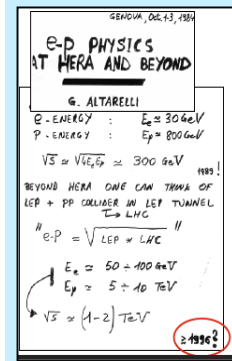 GENOVA, Oct. 1-3, 1984
e-p PHYSICS
AT HERA AND BEYOND
G. ALTARELLI
e - ENERGY : Ee ≃ 30 GeV
P - ENERGY : Ep ≃ 800 GeV
√s ≃ √4EeEp ≃ 300 GeV
1989!
BEYOND HERA ONE CAN THINK OF
LEP + PP COLLIDER IN LEP TUNNEL
↳ LHC
"e-P = √LEP * LHC"
Ee ≃ 50 ÷ 100 GeV
Ep ≃ 5 ÷ 10 TeV
√s ≃ (1-2) TeV
≥ 1996?